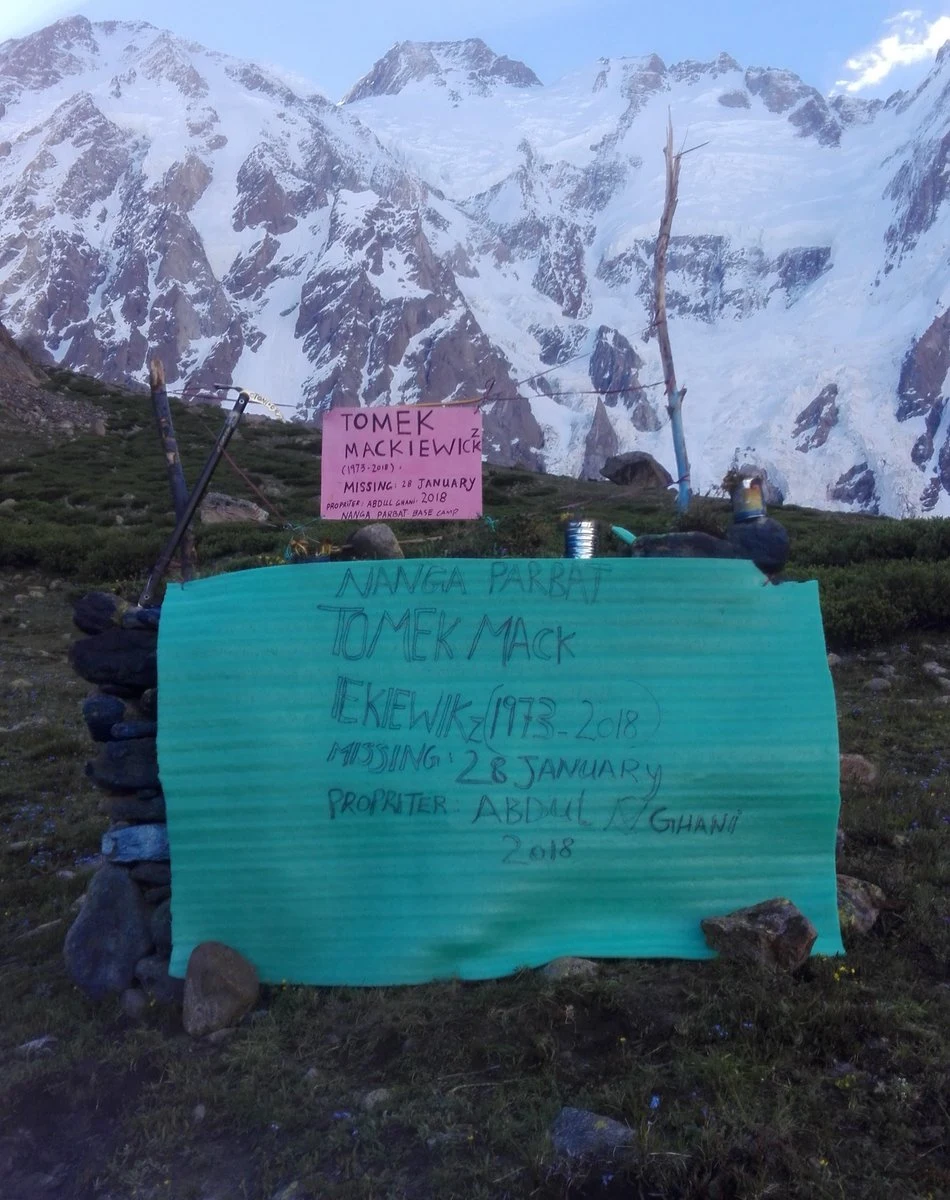 TOMEK
MACKIEWICKZ
(1973-2018).
MISSING: 28 JANUARY
PROPRITER: ABDUL GHANI 2018
NANGA PARBAT BASE CAMP
NANGA PARBAT
TOMEK MACK
IEKIEWIKZ (1973-2018)
MISSING: 28 JANUARY
PROPRITER: ABDUL GHANI
2018